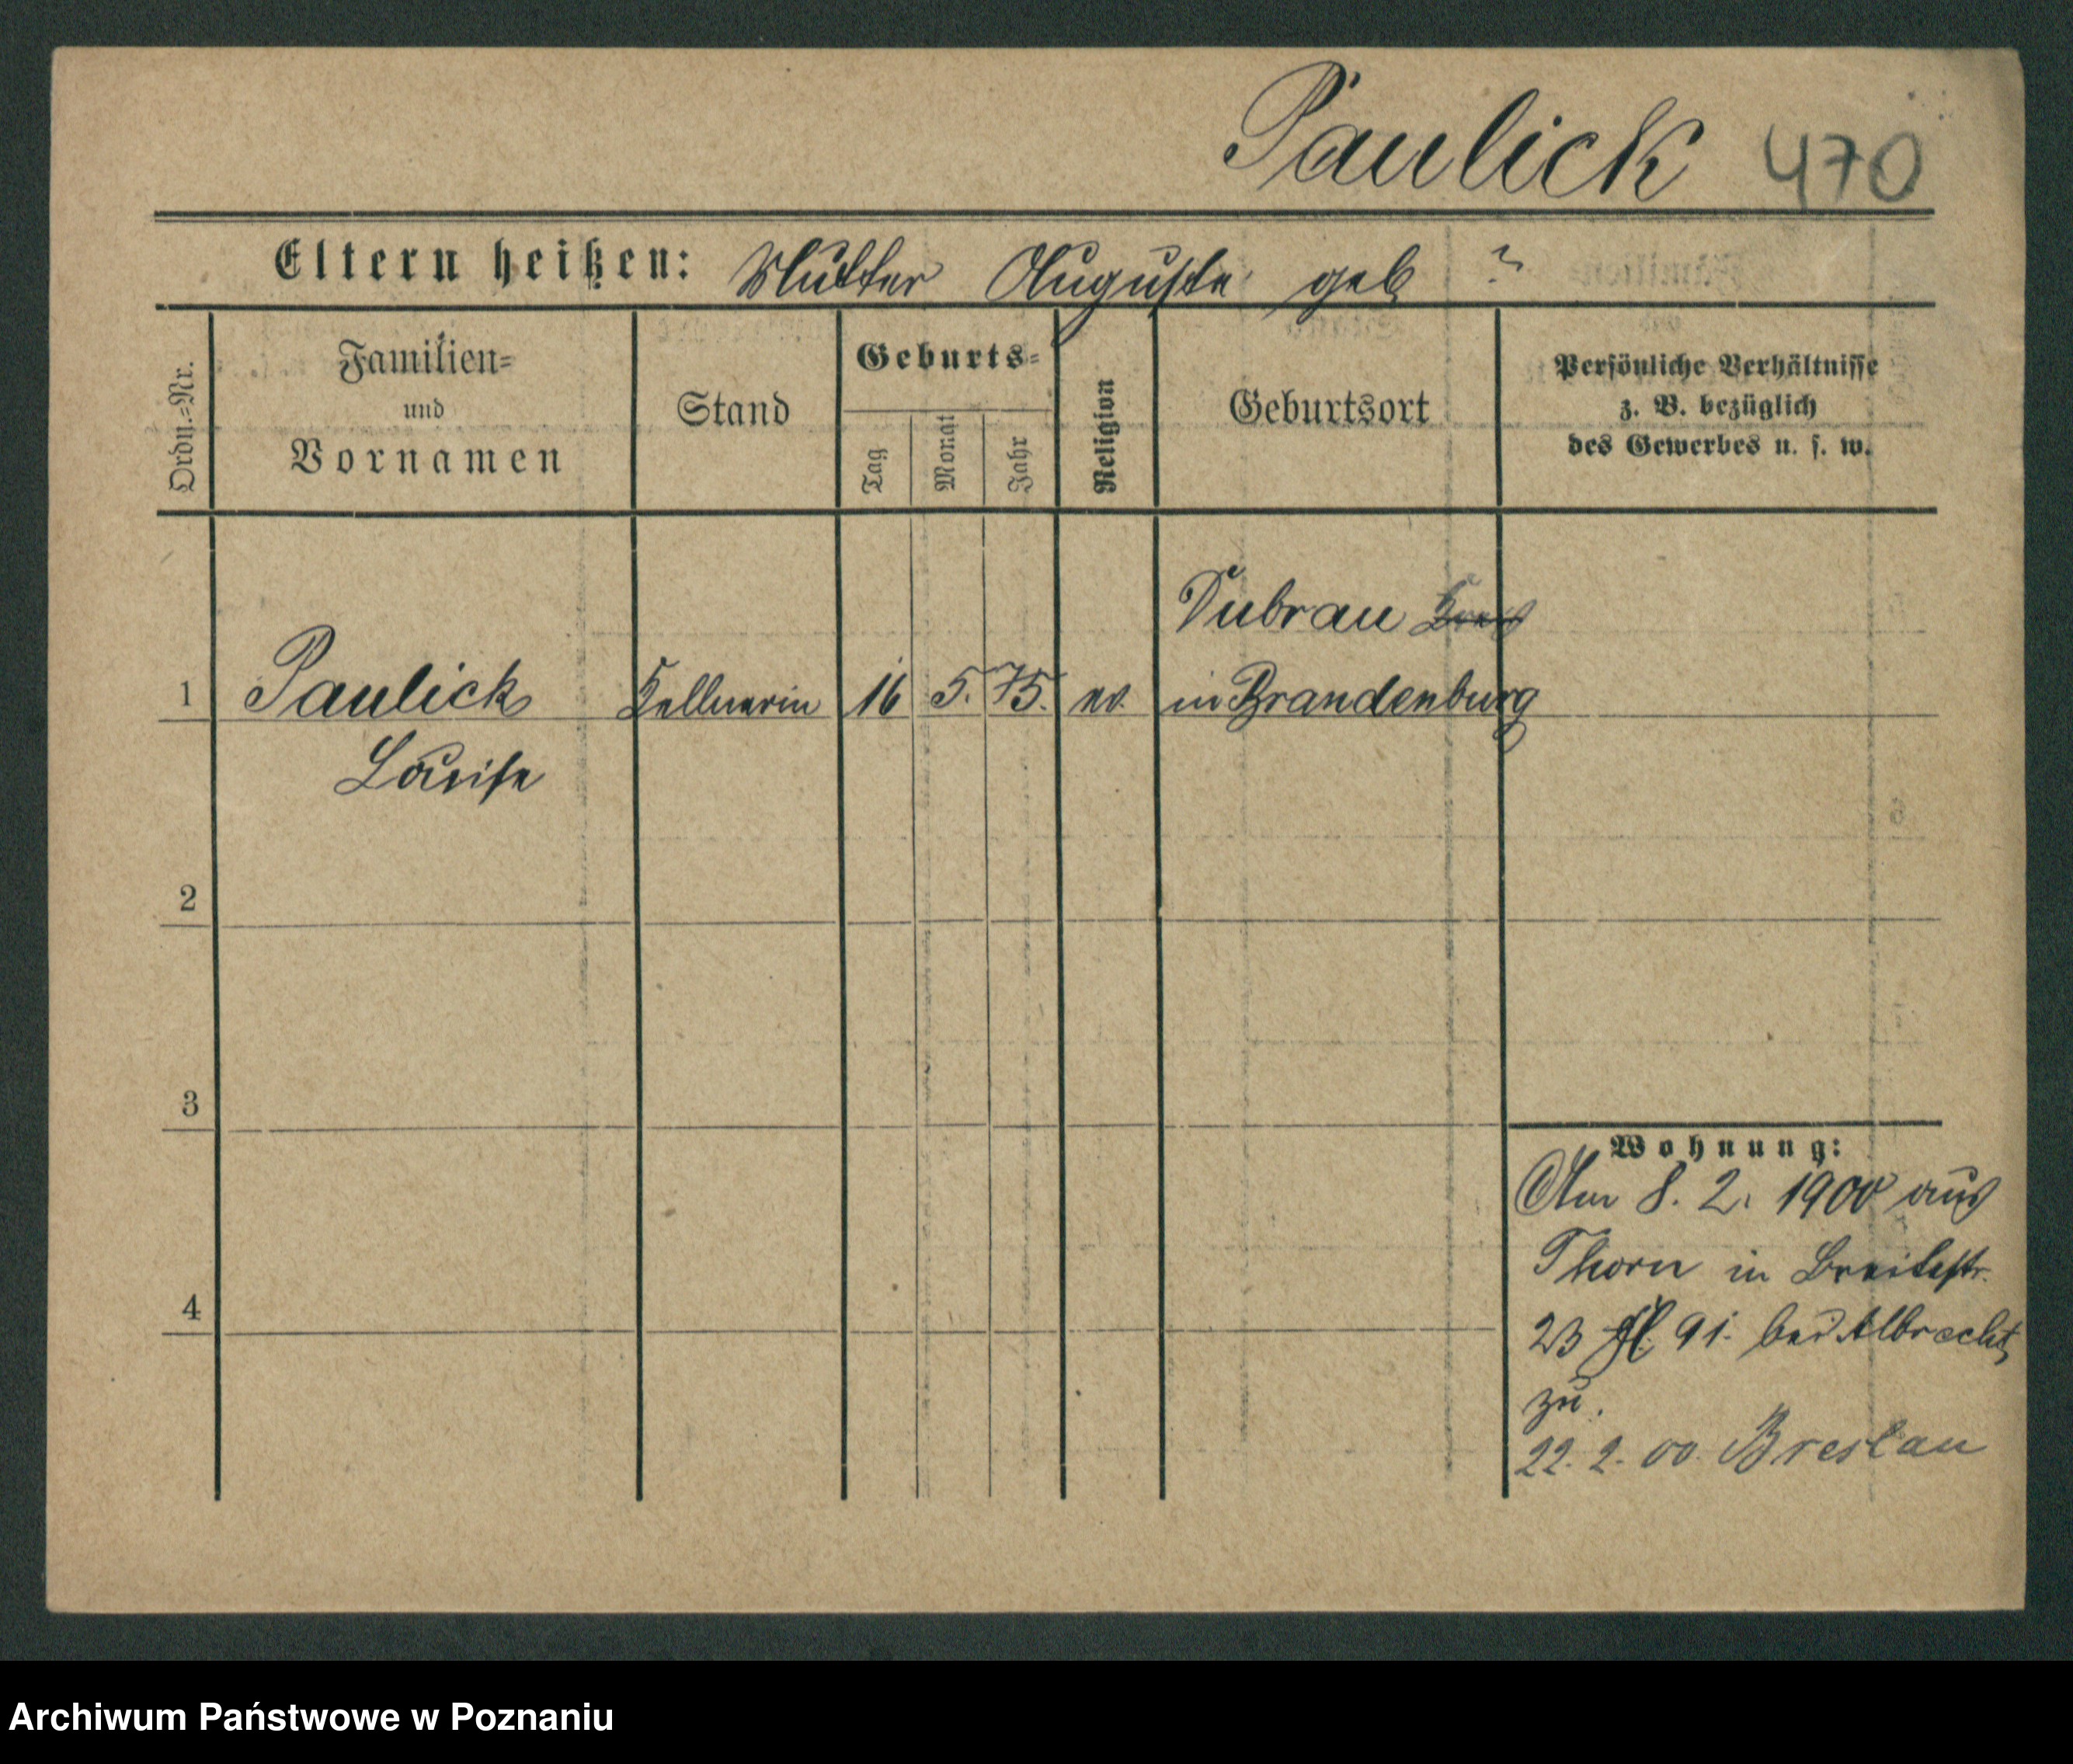 Paulick 470
Eltern heißen: Mutter Auguste geb ?
Ordn.=Nr.
Familien=
und
Vornamen
Stand
Geburts=
Tag
Monat
Jahr
Religion
Geburtsort
Persönliche Verhältnisse
z. B. bezüglich
des Gewerbes u. s. w.
Dubrau Kreis
1 Paulick Kellnerin 16 5. 75. ev. in Brandenburg
Louise
2
3
4
Wohnung:
Am 8. 2. 1900 aus
Thorn in Breitestr.
23 91. bei Albrecht
zu.
22. 2. 00. Breslau
Archiwum Państwowe w Poznaniu